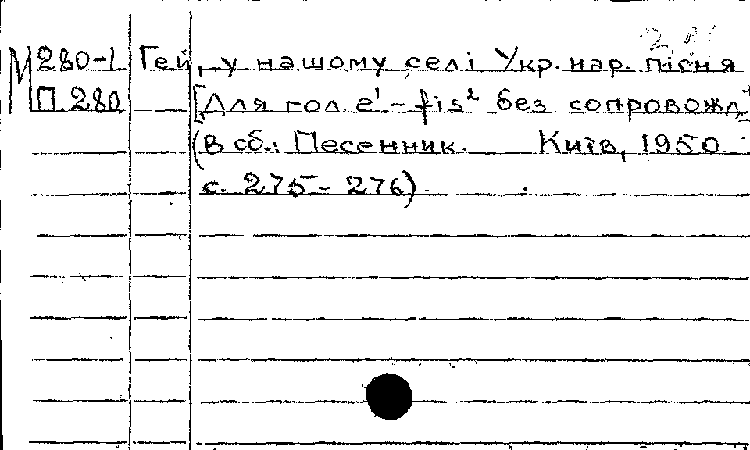 М 280-1 Гей, у нашому селі Укр. нар. пісня
П 280 [Для гол e¹-fis² без сопровожд.]
(В сб.: Песенник. Київ, 1950
с. 275-276)